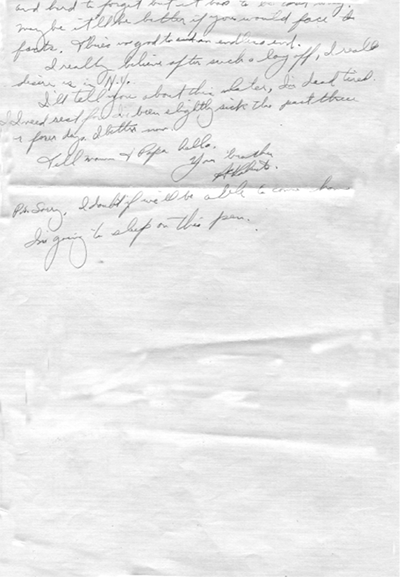 and hard to forget but it has to be
maybe it'll be better if you would face the
facts. This is no good to and an
I really believe after such a lay off, I really
desire is in N.Y.
I'll tell you about this later, I'm dead tired.
I need rest for I've been slightly sick the past three
or four days I better now.
Tell mom & Papa hello.
Your brother
P.S. Sorry, I doubt if we'll be able to come home
I'm going to sleep on this pen.